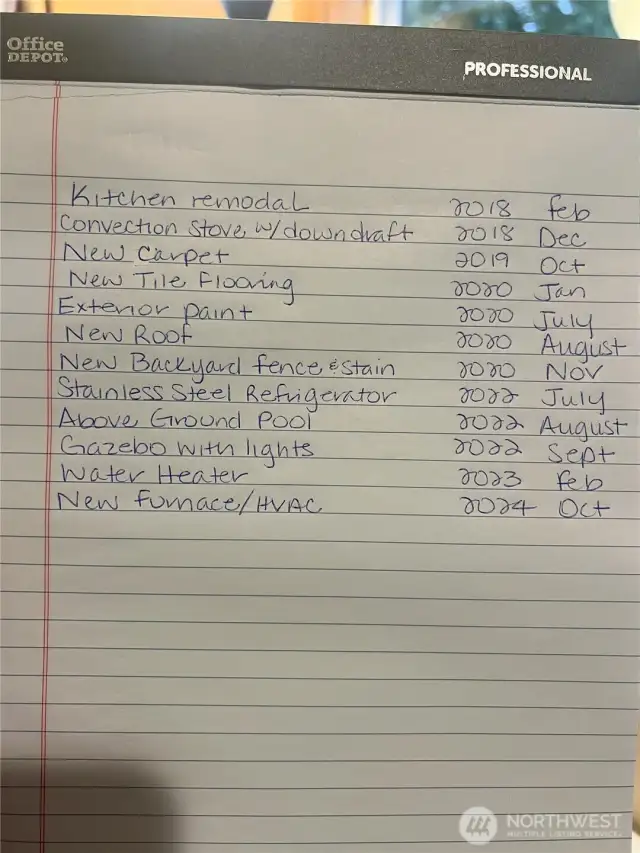 Office
DEPOT®
PROFESSIONAL
Kitchen remodal 2018 feb
Convection Stove w/downdraft 2018 Dec
New Carpet 2019 Oct
New Tile Flooring 2020 Jan
Exterior paint 2020 July
New Roof 2020 August
New Backyard fence & stain 2020 Nov
Stainless Steel Refrigerator 2022 July
Above Ground Pool 2022 August
Gazebo with lights 2022 Sept
Water Heater 2023 feb
New furnace/HVAC 2024 Oct
NORTHWEST
MULTIPLE LISTING SERVICE®